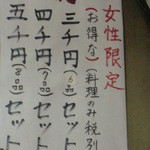 女性限定
(お得な)(料理のみ税別
三千円(6品)セット
四千円(7品)セット
五千円(8品)セット